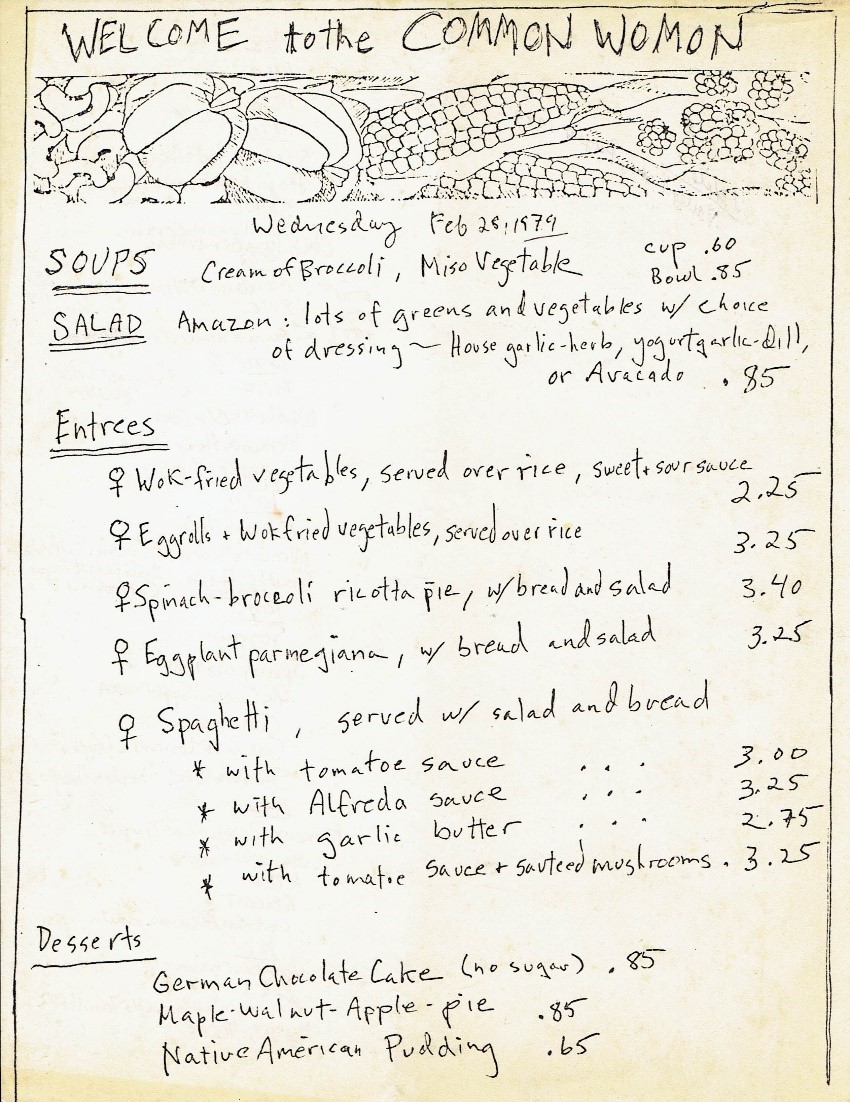 WELCOME to the COMMON WOMON
Wednesday Feb 28, 1979
SOUPS Cream of Broccoli, Miso Vegetable cup .60
Bowl .85
SALAD Amazon: lots of greens and vegetables w/ choice
of dressing ~ House garlic-herb, yogurt garlic-dill,
or Avacado .85
Entrees
♀ Wok-fried vegetables, served over rice, sweet + sour sauce
2.25
♀ Eggrolls + Wokfried vegetables, served over rice 3.25
♀ Spinach-broccoli ricotta pie, w/ bread and salad 3.40
♀ Eggplant parmegiana, w/ bread and salad 3.25
♀ Spaghetti, served w/ salad and bread
* with tomatoe sauce . . . 3.00
* with Alfreda sauce . . . 3.25
* with garlic butter . . . 2.75
* with tomatoe sauce + sauteed mushrooms . 3.25
Desserts
German Chocolate Cake (no sugar) .85
Maple-Walnut-Apple-pie .85
Native American Pudding .65